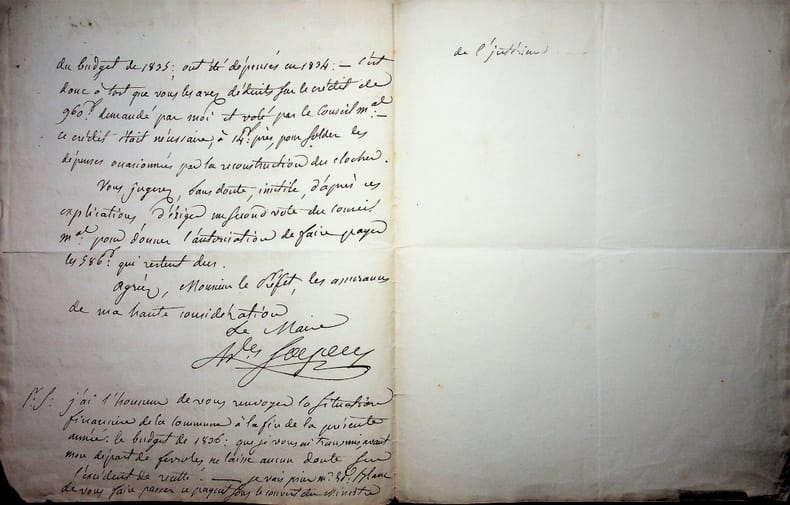 du budget de 1835; ont été dépensés en 1834; — c'est
donc à tort que vous les avez déduits sur le crédit de
960.f demandé par moi et voté par le Conseil m.al —
ce crédit était nécessaire, à 14.f près, pour solder les
dépenses occasionnées par la reconstruction du clocher.
Vous jugerez, sans doute, inutile, d'après ces
explications d'éxiger un second vote du conseil
m.al pour donner l'autorisation de faire payer
les 586.f qui restent dus.
Agréez, Monsieur le Préfet, les assurances
de ma haute considération
Le Maire
P.S: j'ai l'honneur de vous renvoyer la situation
financière de la commune à la fin de la présente
année. le budget de 1836: que je vous ai transmis avant
mon départ de ne laisse aucun doute sur
l'excédent de recette. — je vais prier m.r Blanc
de vous faire passer ce paquet sous le couvert du Ministre
de l'justice